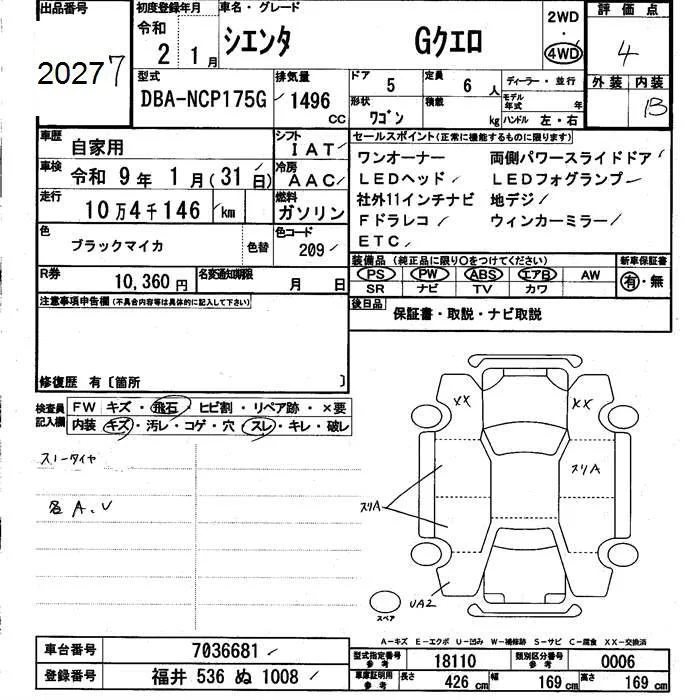 出品番号
20277
初度登録年月
令和
2 1月
車名・グレード
シエンタ Gクエロ
2WD
・
4WD
評価点
4
外装 内装
B
型式
DBA-NCP175G
排気量
1496
CC
ドア
5
定員
6 人
ディーラー・並行
形状
ワゴン
積載
kg
モデル年式
年
ハンドル 左・右
車歴
自家用
シフト
IAT
車検
令和 9年 1月(31日)
冷房
AAC
走行
10万4千146 km
燃料
ガソリン
色
ブラックマイカ
色替
色コード
209
R券
10,360円
名変通知期限
月 日
セールスポイント(正常に機能するものに限ります)
ワンオーナー 両側パワースライドドア
LEDヘッド LEDフォグランプ
社外11インチナビ 地デジ
Fドラレコ ウィンカーミラー
ETC
装備品(純正品に限り〇をつけてください)
PS PW ABS エアB AW
SR ナビ TV カワ
新車保証書
有・無
後日品
保証書・取説・ナビ取説
注意事項申告欄(不具合内容等は具体的に記入して下さい)
修復歴 有〔箇所 〕
検査員記入欄
FW キズ・飛石・ヒビ割・リペア跡・×要
内装 キズ・汚レ・コゲ・穴・スレ・キレ・破レ
スノータイヤ
各A、U
XX
XX
スリA
スリA
UA2
スペア
A-キズ E-エクボ U-凹み W-補修跡 S-サビ C-腐食 XX-交換済
車台番号
7036681
登録番号
福井 536 ぬ 1008
型式指定番号
参考
18110
類別区分番号
参考
0006
車庫証明用
参考
長さ
426 cm
幅
169 cm
高さ
169 cm